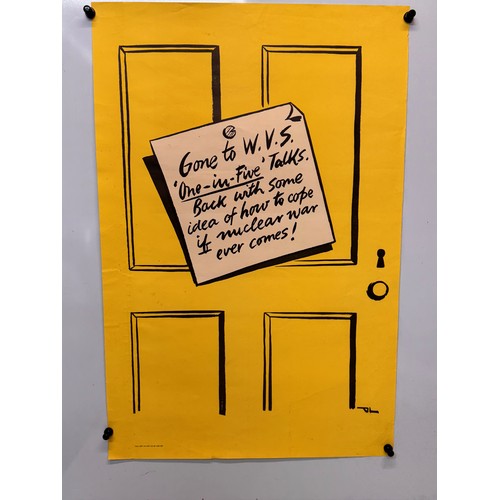 Gone to W.V.S.
'One-in-Five' Talks.
Back with some
idea of how to cope
if nuclear war
ever comes!